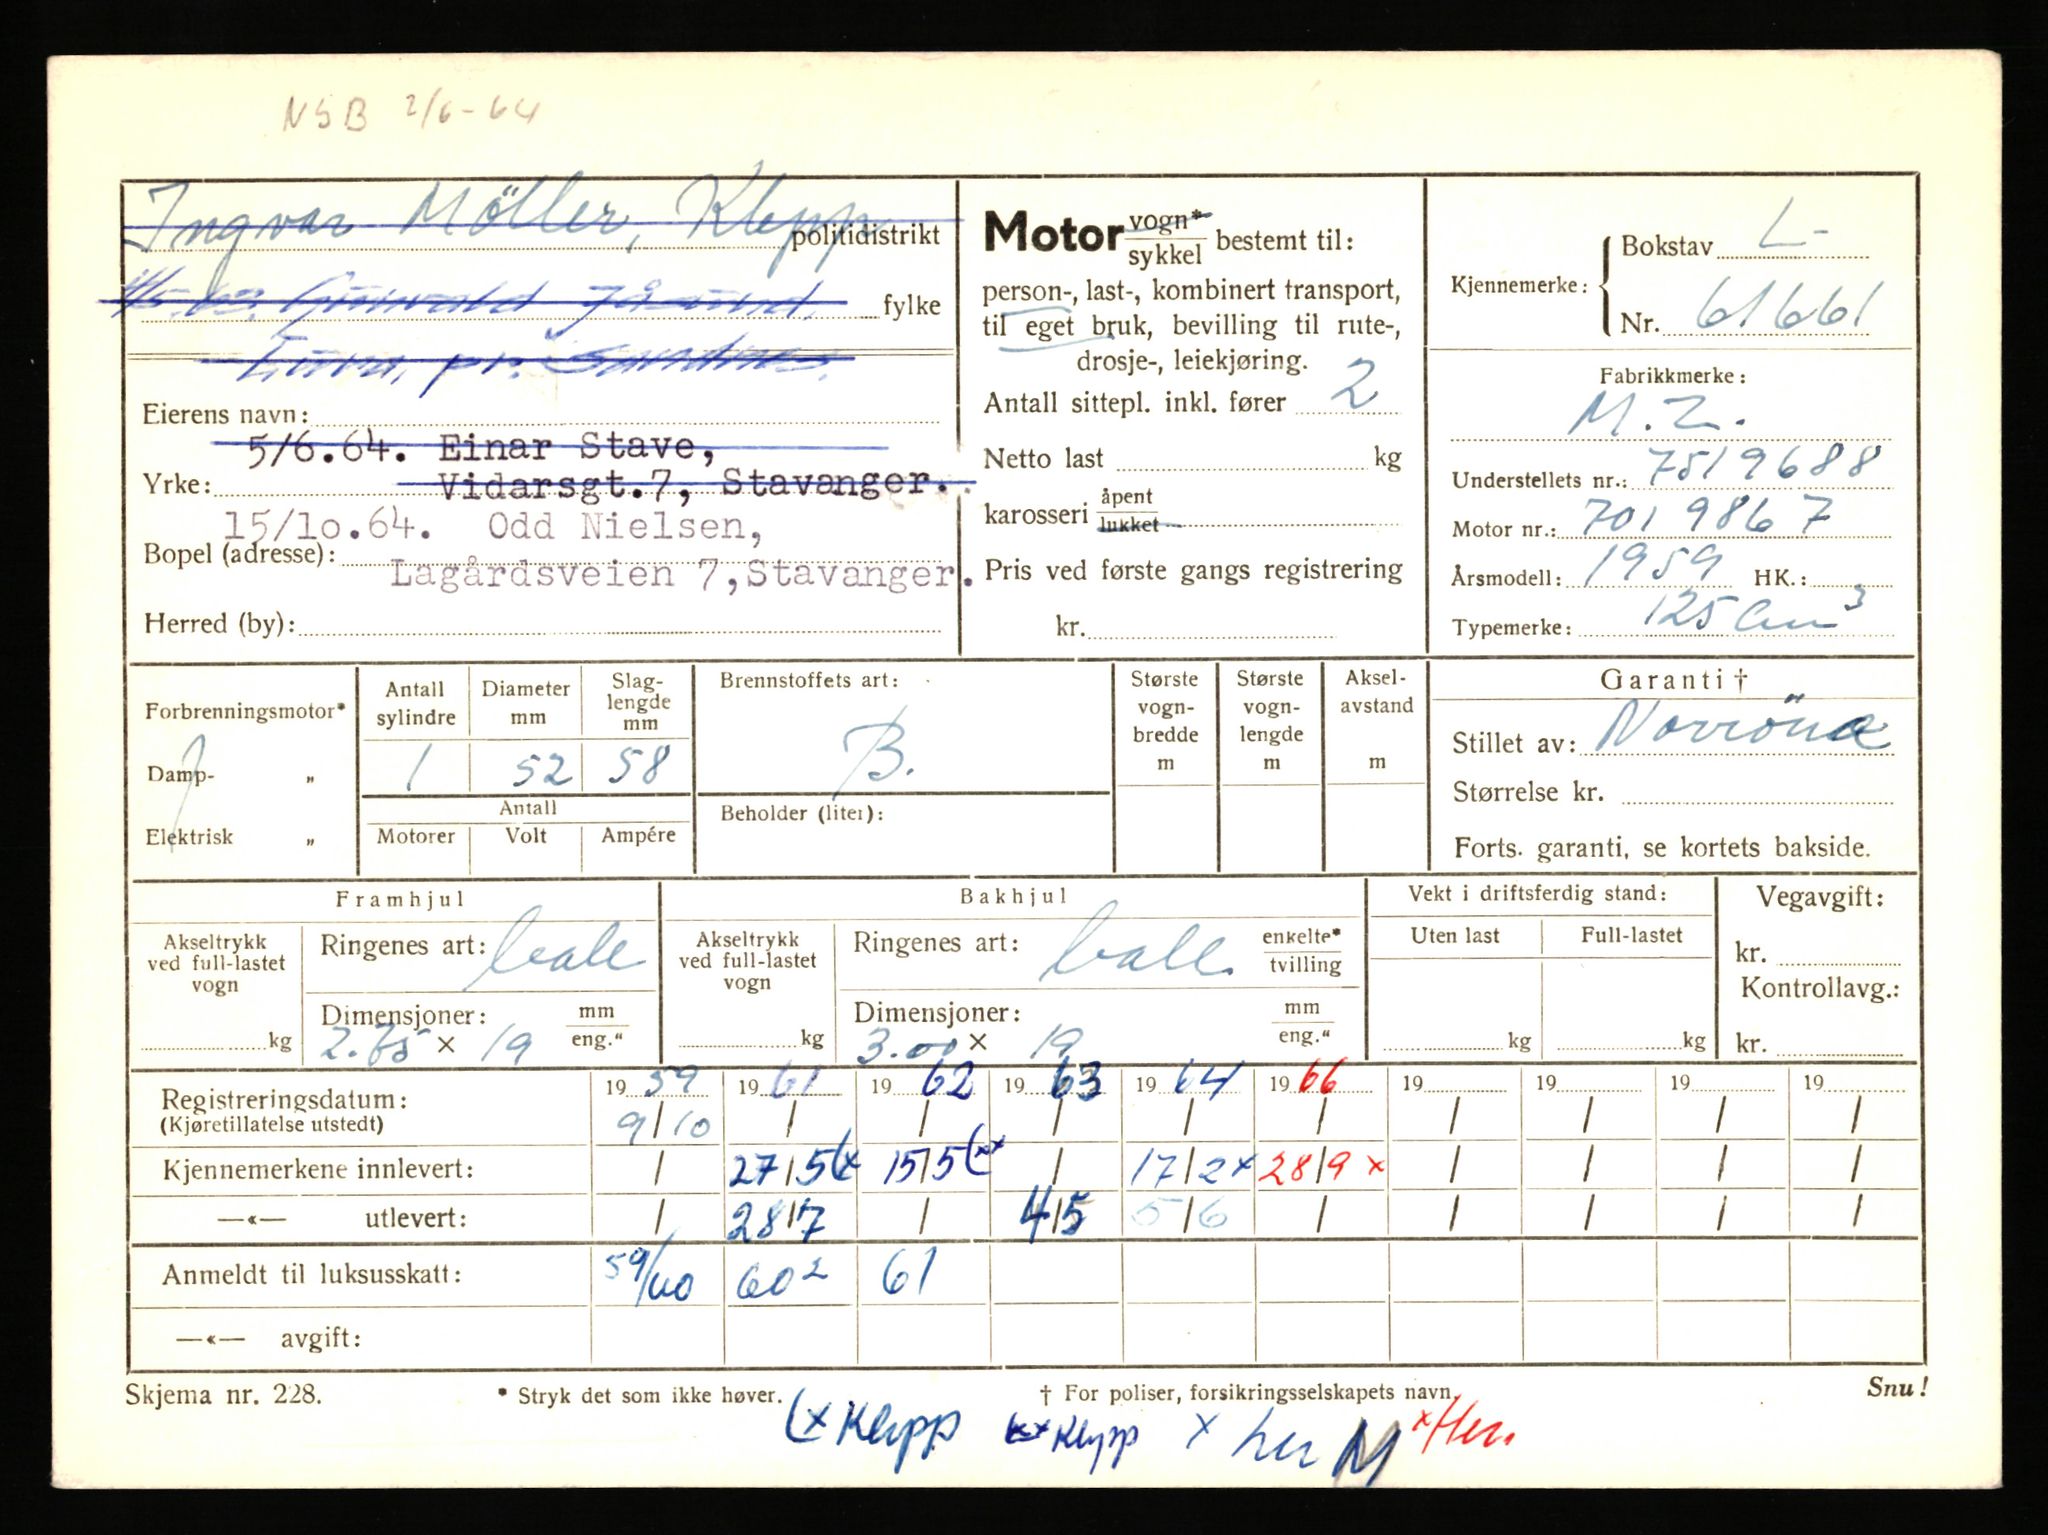 NSB 2/6-64
Ingvar Möller, Klepp
politidistrikt
fylke
pr. Sandnes.
Eierens navn:
5/6.64. Einar Stave,
Yrke: Vidarsgt.7, Stavanger.
15/10.64. Odd Nielsen,
Bopel (adresse):
Lagårdsveien 7, Stavanger.
Herred (by):
Motor vogn* sykkel bestemt til:
person-, last-, kombinert transport,
til eget bruk, bevilling til rute-,
drosje-, leiekjøring.
Antall sittepl. inkl. fører 2
Netto last kg
karosseri åpent lukket
Pris ved første gangs registrering
kr.
Kjennemerke: Bokstav L-
Nr. 61661
Fabrikkmerke:
M.Z.
Understellets nr.: 7519688
Motor nr.: 7019867
Årsmodell: 1959 HK.:
Typemerke: 125 Cm3
Forbrenningsmotor*
Damp- „
Elektrisk „
Antall sylindre
Diameter mm
Slag- lengde mm
1 52 58
Antall
Motorer Volt Ampére
Brennstoffets art:
B.
Beholder (liter):
Største vogn- bredde m
Største vogn- lengde m
Aksel- avstand m
Garanti †
Stillet av: Norröna
Størrelse kr.
Forts. garanti, se kortets bakside.
Framhjul
Akseltrykk ved full-lastet vogn
kg
Ringenes art: ball
Dimensjoner: mm eng."
2.75 x 19
Bakhjul
Akseltrykk ved full-lastet vogn
kg
Ringenes art: ball. enkelte* tvilling
Dimensjoner: mm eng."
3.00 x 19
Vekt i driftsferdig stand:
Uten last Full-lastet
kg kg
Vegavgift:
kr.
Kontrollavg.:
kr.
19 59 19 61 19 62 19 63 19 64 19 66 19 19 19 19
Registreringsdatum: 9/10 / / / / / / / / /
(Kjøretillatelse utstedt)
Kjennemerkene innlevert: / 27/5 (x 15/5 (xx / 17/2 x 28/9 x / / / /
—«— utlevert: / 28/7 / 4/5 5/6 / / / / /
Anmeldt til luksusskatt: 59/60 60² 61
—«— avgift:
Skjema nr. 228. * Stryk det som ikke høver. † For poliser, forsikringsselskapets navn. Snu!
(x Klepp xx Klepp x her M x Her.